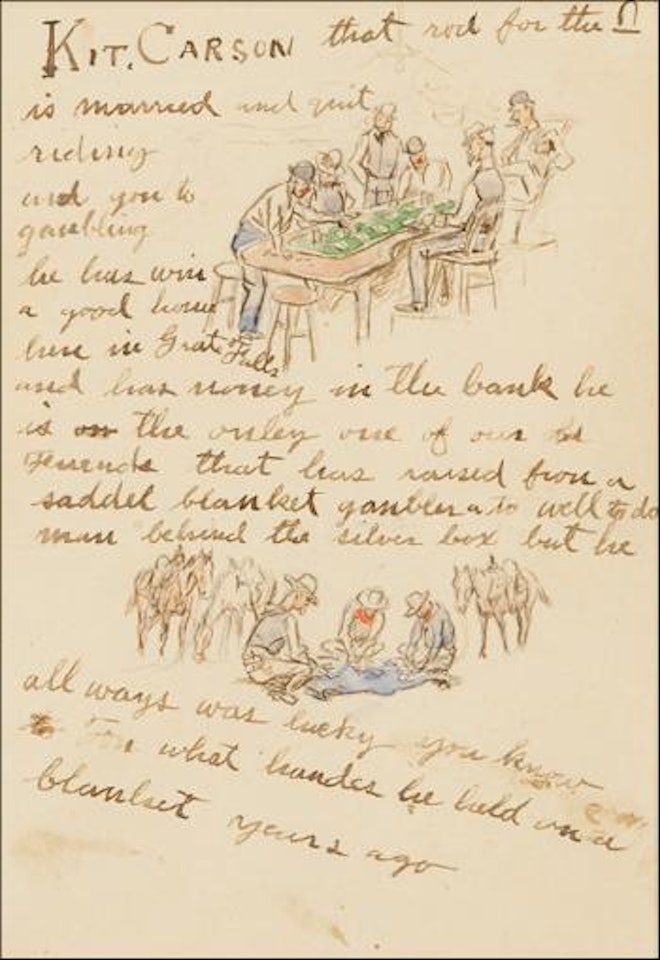 KIT. CARSON that rod for the
is married and quit
riding
and you to
gambling
he has win
a good home
here in Grate Falls
and has money in the bank he
is on the onley one of our old
Friends that has raised from a
saddel blanket gambler to well to do
man behind the silver box but he
all ways was lucky you know
what handes he held on a
blanket years ago